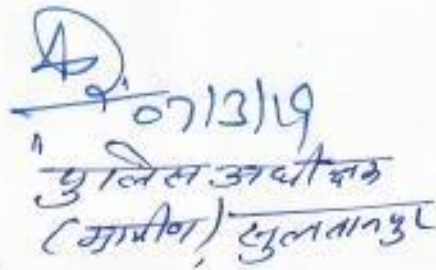 07/3/19
पुलिस अधीक्षक
(ग्रामीण) सुलतानपुर